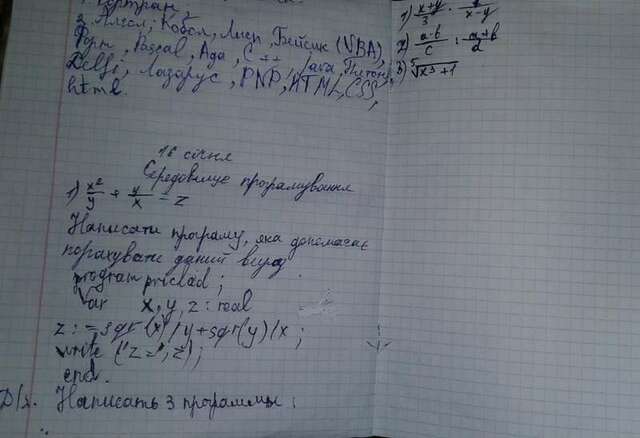 Фортран,
2. Алгол; Кобол, Лисп, Бейсик (VBA),
Форт, Pascal, Ада, C++, Java, Питон,
Delfi, Лазарус, PNP, HTML, CSS,
html.
16 січня
Середовище програмування
1) x²/y + y/x = z
Написати програму, яка допомагає
порахувати даний вираз
program priclad;
Var x, y, z : real
z := sqr(x)/y + sqr(y)/x;
write ('z=', z);
end.
Д/з. Написать 3 программы:
1) x+y/3 · /x-y
2) a-b/c : a+b/d
3) ⁵√x³+1